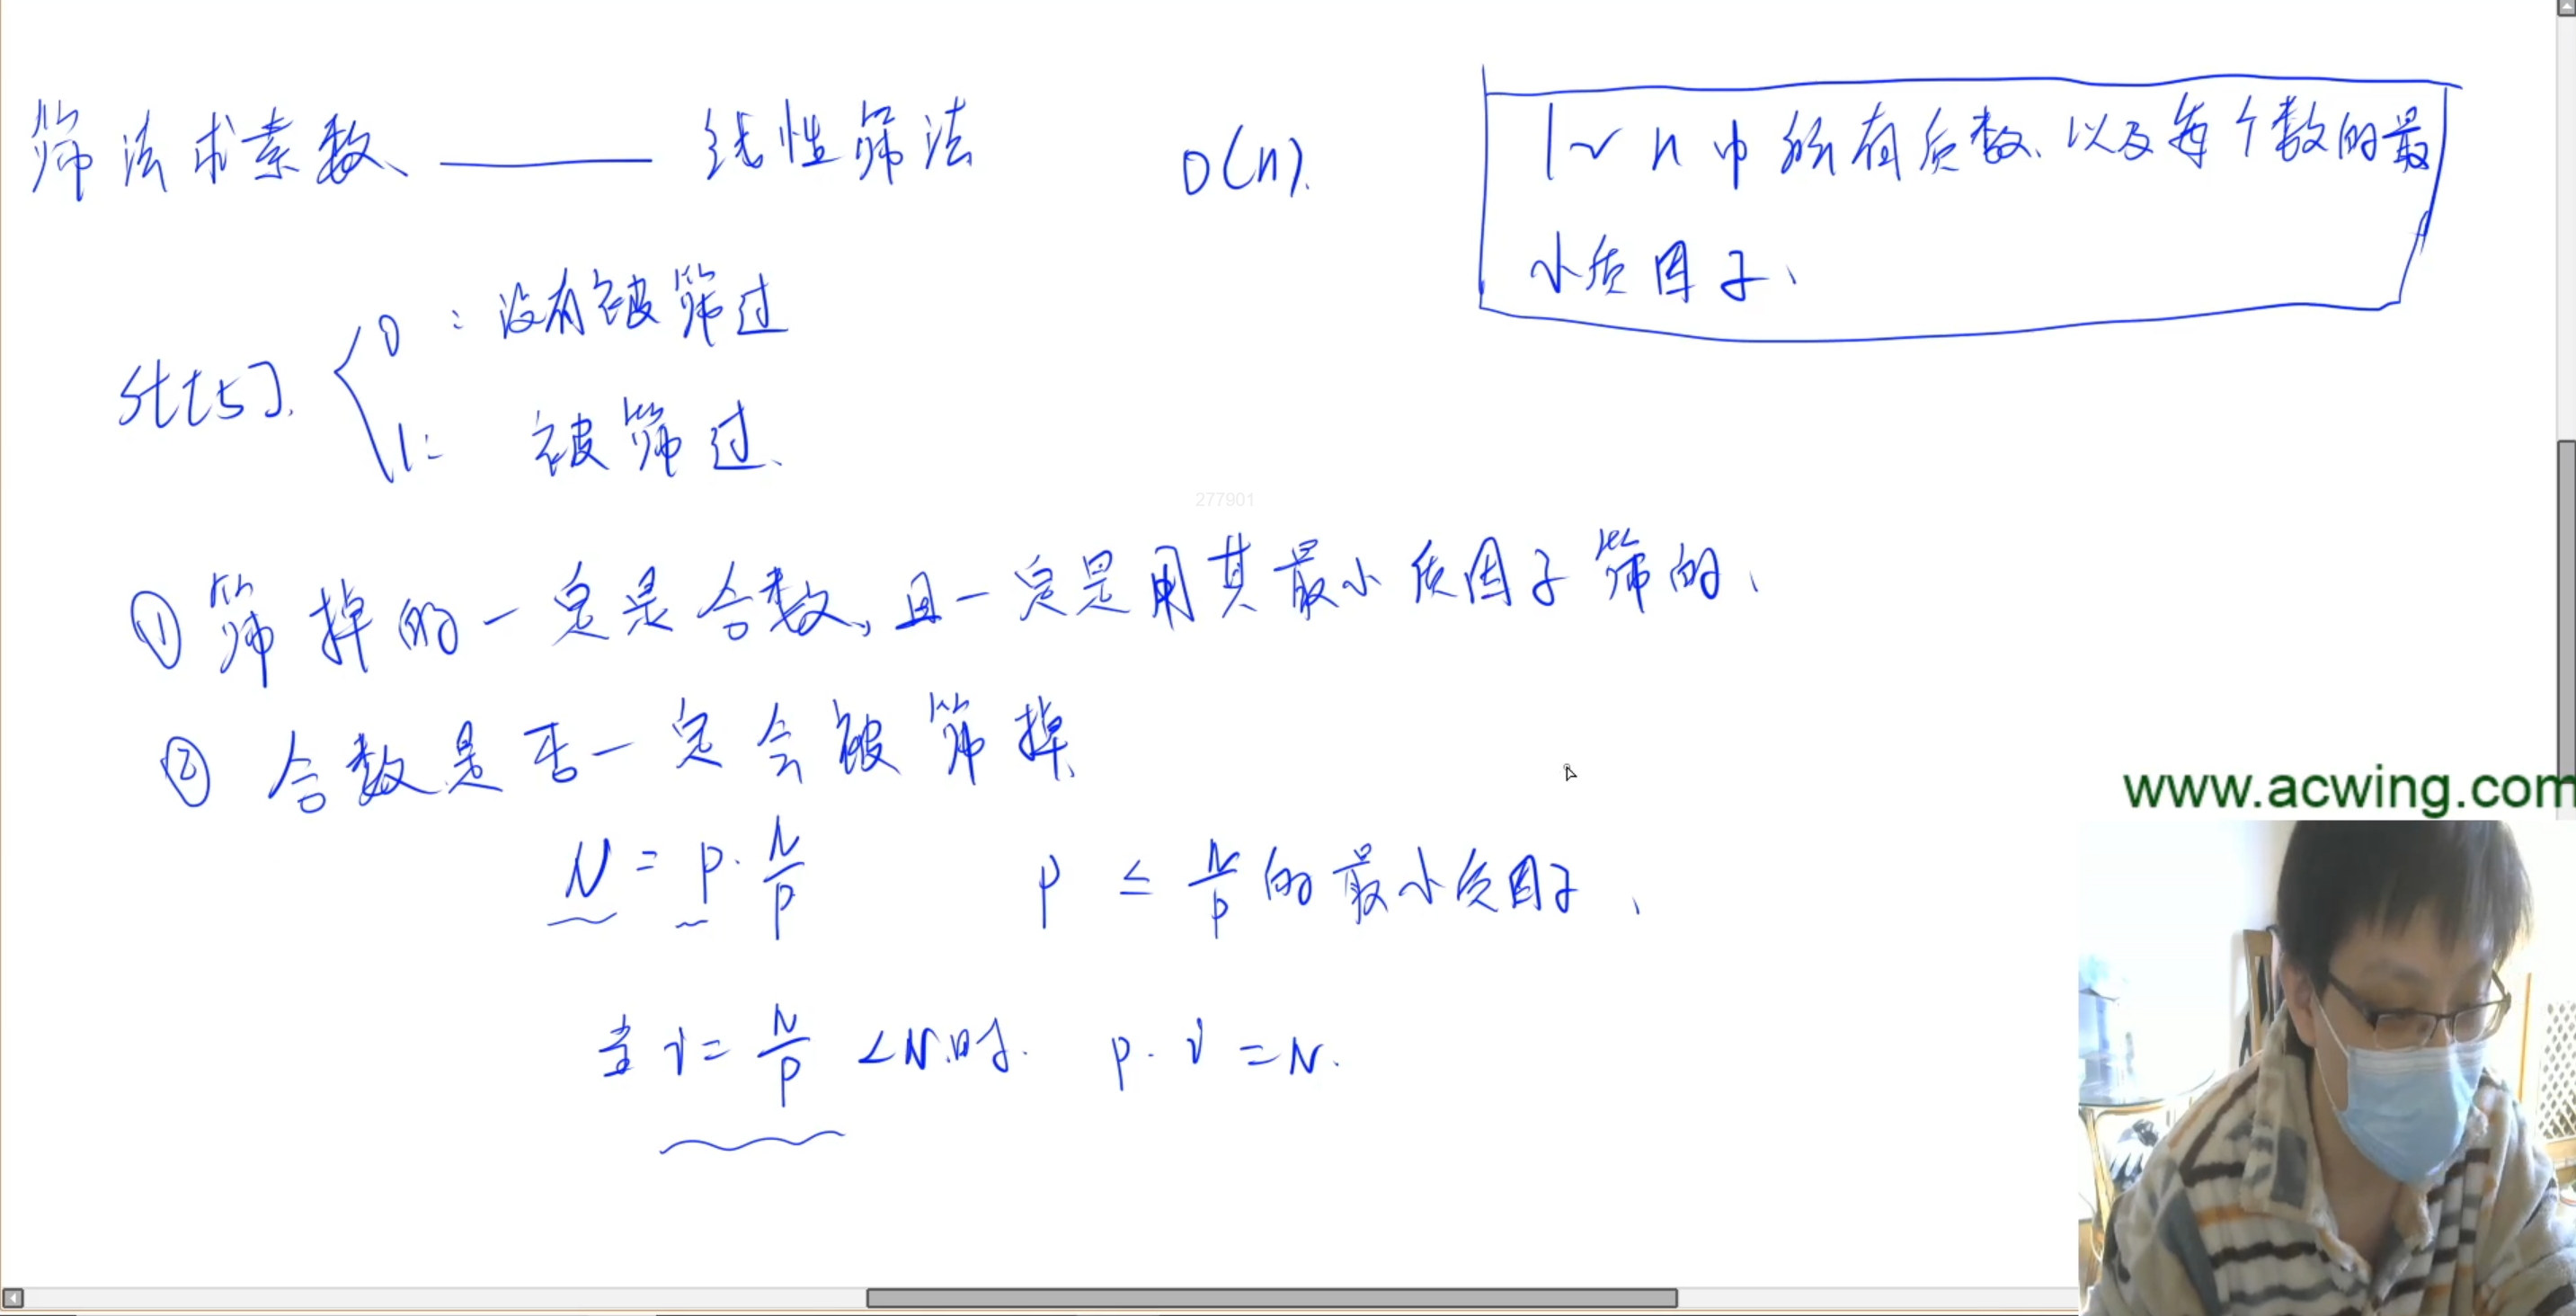 筛法求素数 —— 线性筛法 O(n).
1~n中所有质数、以及每个数的最
小质因子、
st[5].
0: 没有被筛过
1: 被筛过、
277901
① 筛掉的一定是合数, 且一定是用其最小质因子筛的、
② 合数是否一定会被筛掉
N = p · N/p p ≤ N/p 的最小质因子、
当 i = N/p < N时. p · i = N.
www.acwing.com